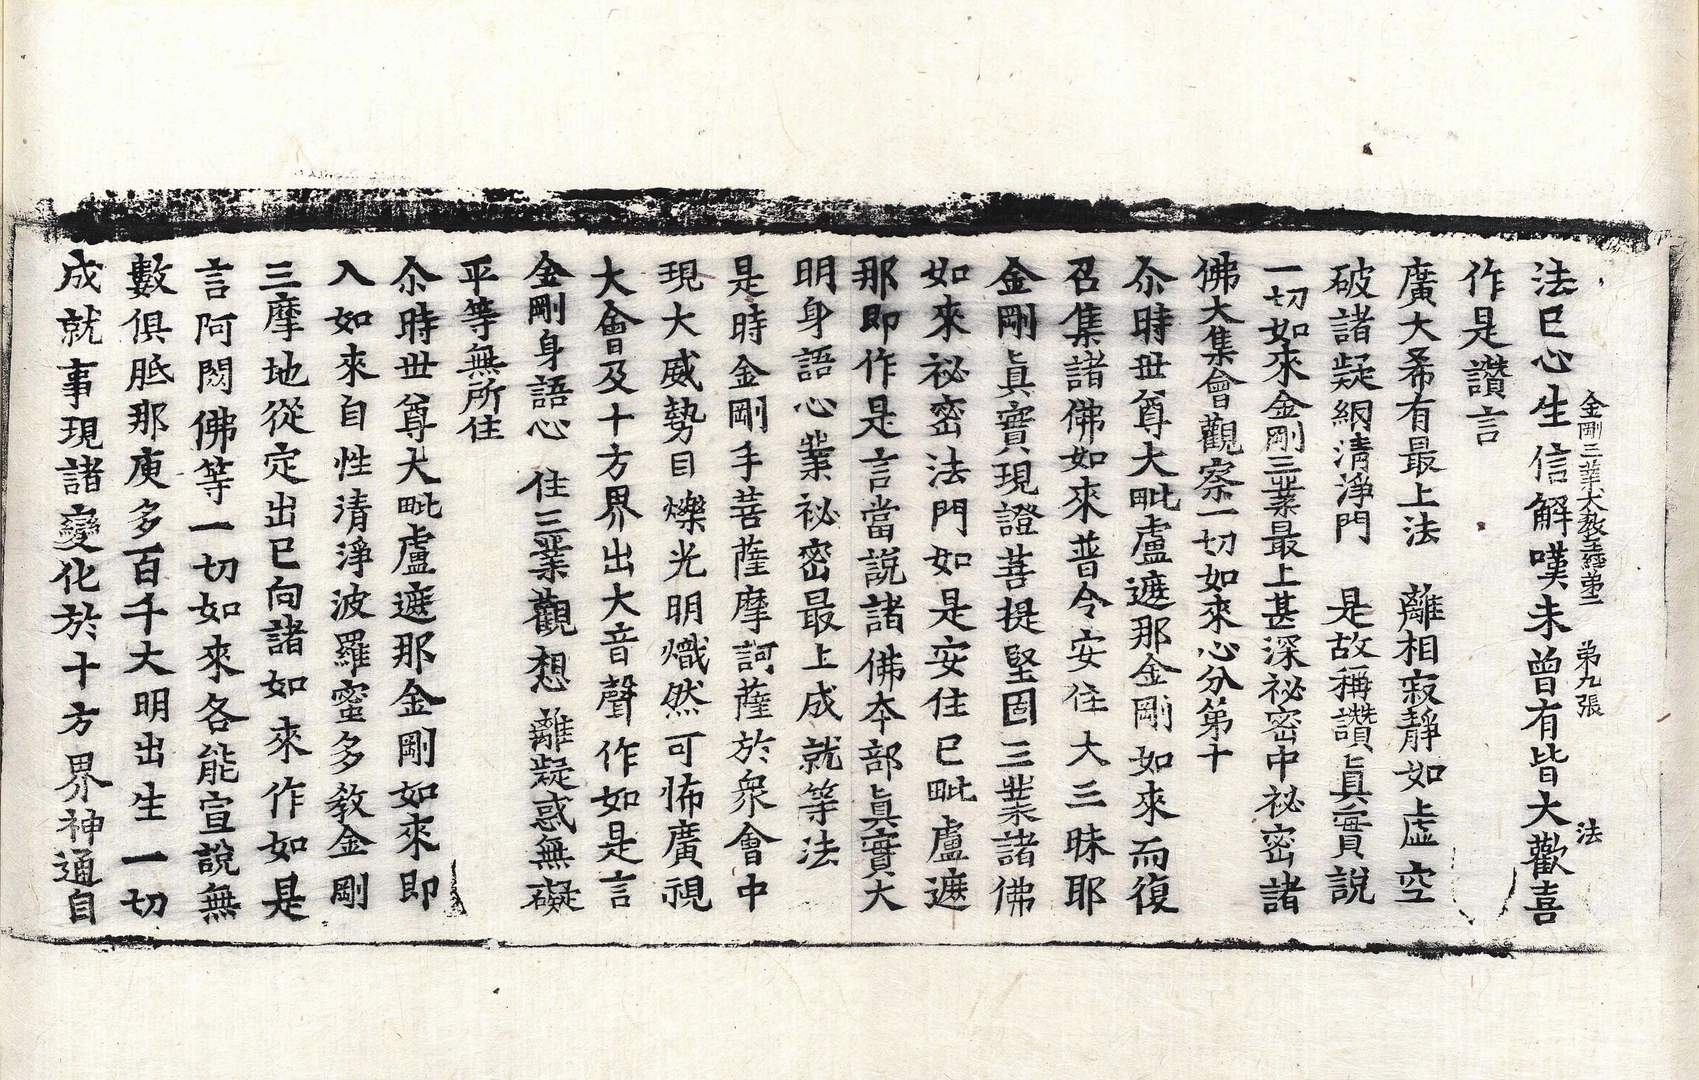 金剛三業大教王經第二　第九張　法
法已心生信解嘆未曾有皆大歡喜
作是讚言
廣大希有最上法　離相寂靜如虛空
破諸疑網清淨門　是故稱讚眞實說
一切如來金剛三業最上甚深祕密中祕密諸
佛大集會觀察一切如來心分第十
尒時世尊大毗盧遮那金剛如來而復
召集諸佛如來普令安住大三昧耶
金剛眞實現證菩提堅固三業諸佛
如來祕密法門如是安住已毗盧遮
那即作是言當說諸佛本部眞實大
明身語心業祕密最上成就等法
是時金剛手菩薩摩訶薩於衆會中
現大威勢目爍光明熾然可怖廣視
大會及十方界出大音聲作如是言
金剛身語心　住三業觀想　離疑惑無礙
平等無所住
尒時世尊大毗盧遮那金剛如來即
入如來自性清淨波羅蜜多教金剛
三摩地從定出已向諸如來作如是
言阿閦佛等一切如來各能宣說無
數俱胝那庾多百千大明出生一切
成就事現諸變化於十方界神通自